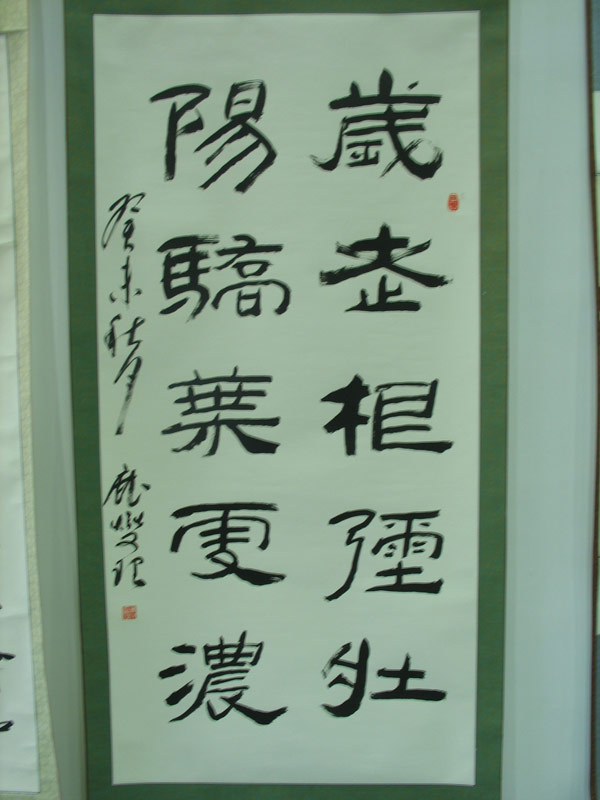 歲老根彌壯
陽驕葉更濃
癸未秋月